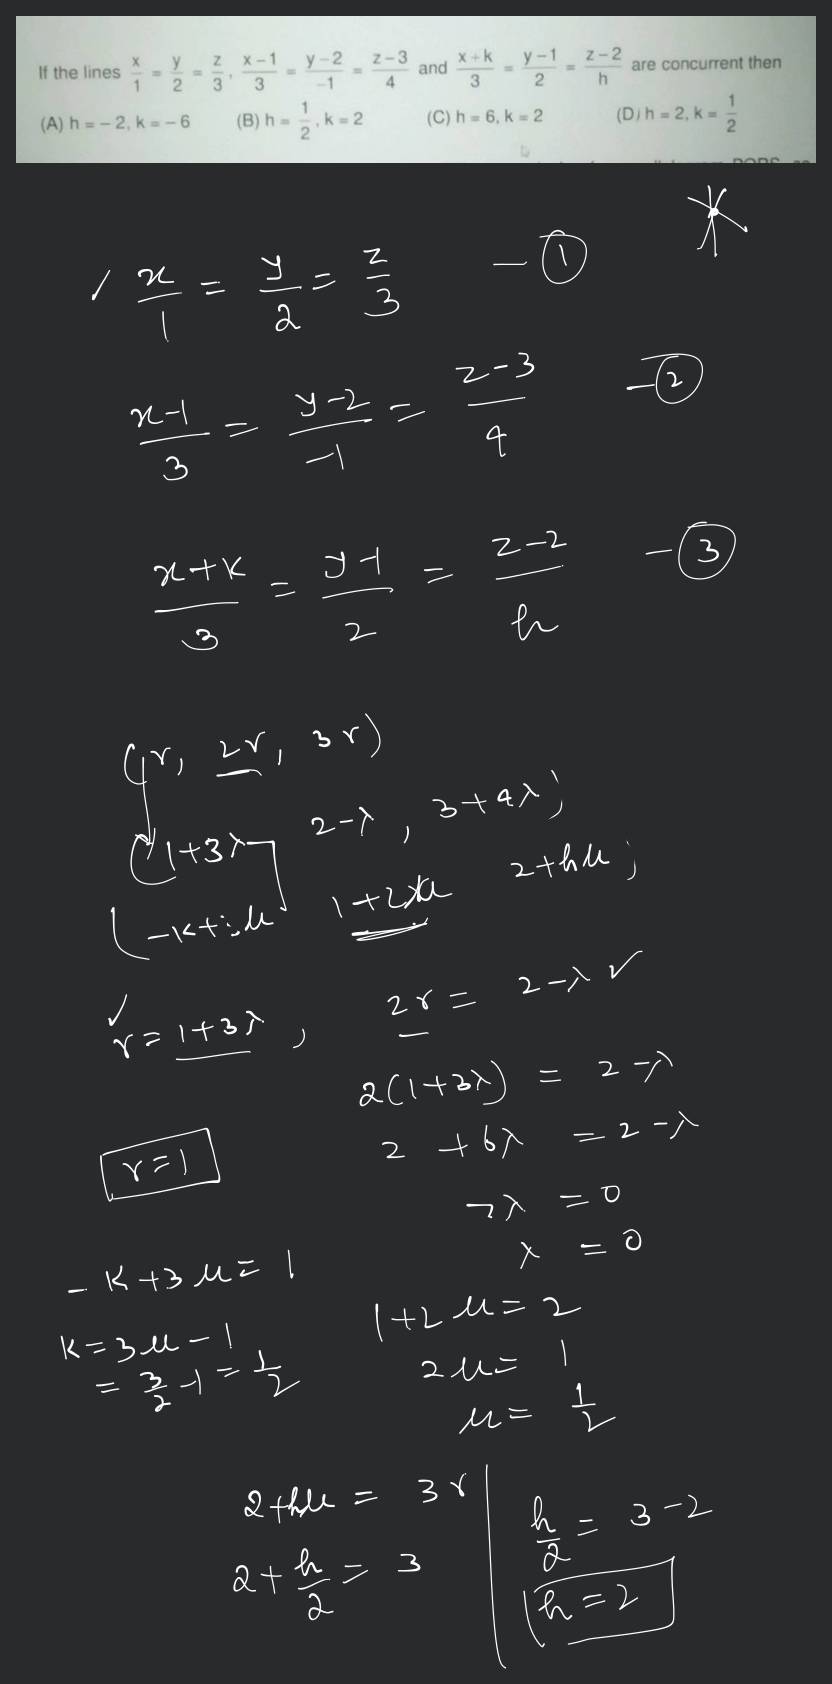 If the lines x/1 = y/2 = z/3, (x-1)/3 = (y-2)/-1 = (z-3)/4 and (x+k)/3 = (y-1)/2 = (z-2)/h are concurrent then
(A) h = -2, k = -6 (B) h = 1/2, k = 2 (C) h = 6, k = 2 (D) h = 2, k = 1/2
x/1 = y/2 = z/3 - ①
(x-1)/3 = (y-2)/-1 = (z-3)/4 - ②
(x+k)/3 = (y-1)/2 = (z-2)/h - ③
(r, 2r, 3r)
(1+3λ, 2-λ, 3+4λ)
(-k+3μ 1+2μ 2+hμ
r = 1+3λ, 2r = 2-λ ✓
2(1+3λ) = 2-λ
2 + 6λ = 2-λ
r=1
7λ = 0
λ = 0
-k+3μ = 1
1+2μ = 2
k = 3μ-1
= 3/2 -1 = 1/2
2μ = 1
μ = 1/2
2+hμ = 3r
2+h/2 = 3
h/2 = 3-2
h=2